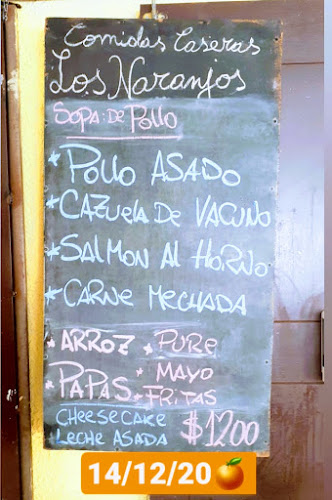 Comidas Caseras
Los Naranjos
SOPA DE POLLO
* POLLO ASADO
* CAZUELA DE VACUNO
* SALMON AL HORNO
* CARNE MECHADA
* ARROZ * PURE
* PAPAS * MAYO
* FRITAS
CHEESECAKE
LECHE ASADA
$1200
14/12/20🍊